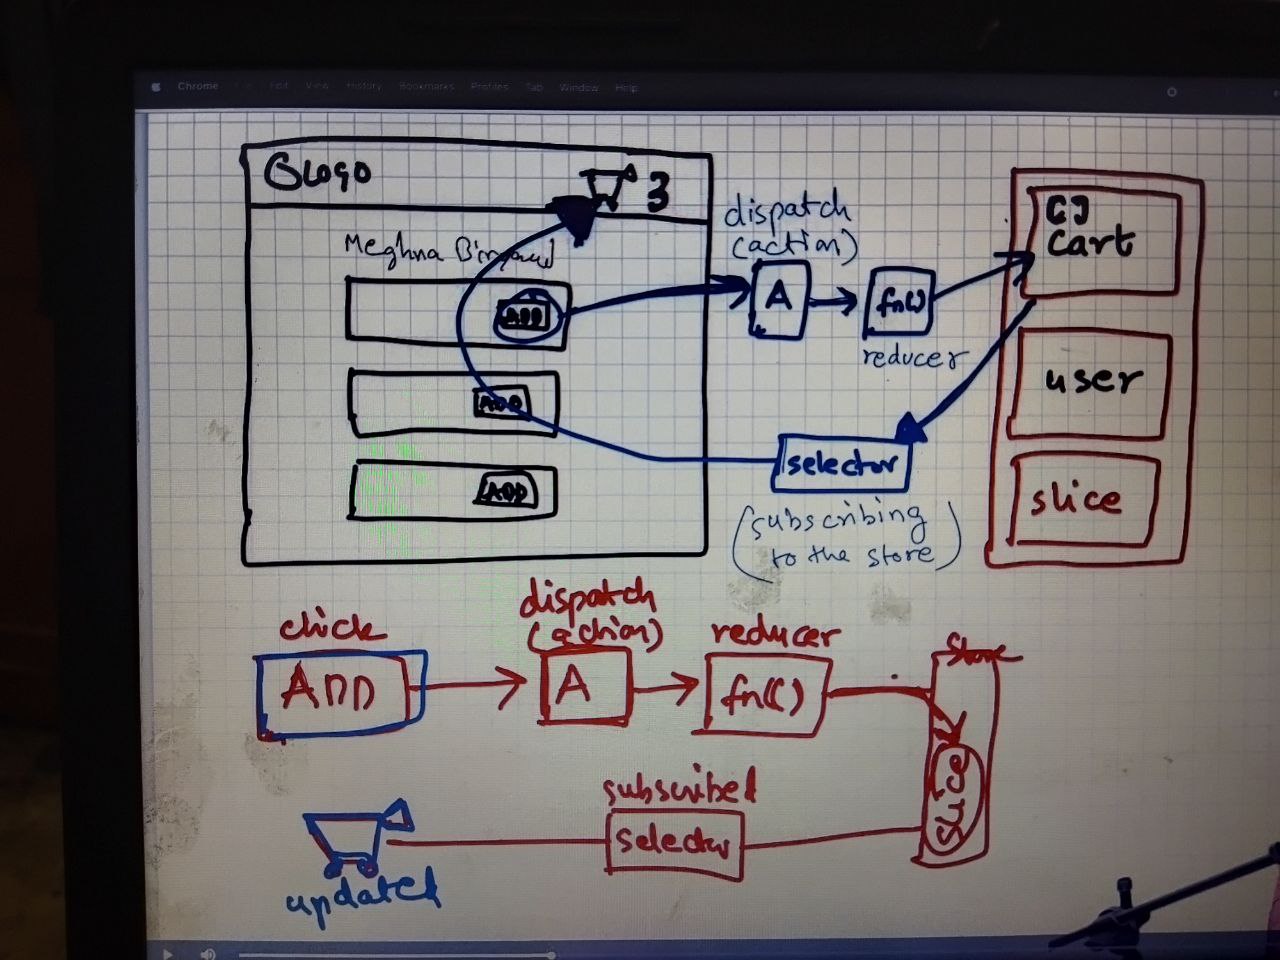 Chrome
File Edit View History Bookmarks Profiles Tab Window Help
Logo
3
Meghna
ADD
ADD
ADD
dispatch
(action)
A
fn()
reducer
cart
user
slice
selector
(subscribing
to the store)
click
ADD
dispatch
(action)
A
reducer
fn()
Store
slice
subscribed
selector
updated